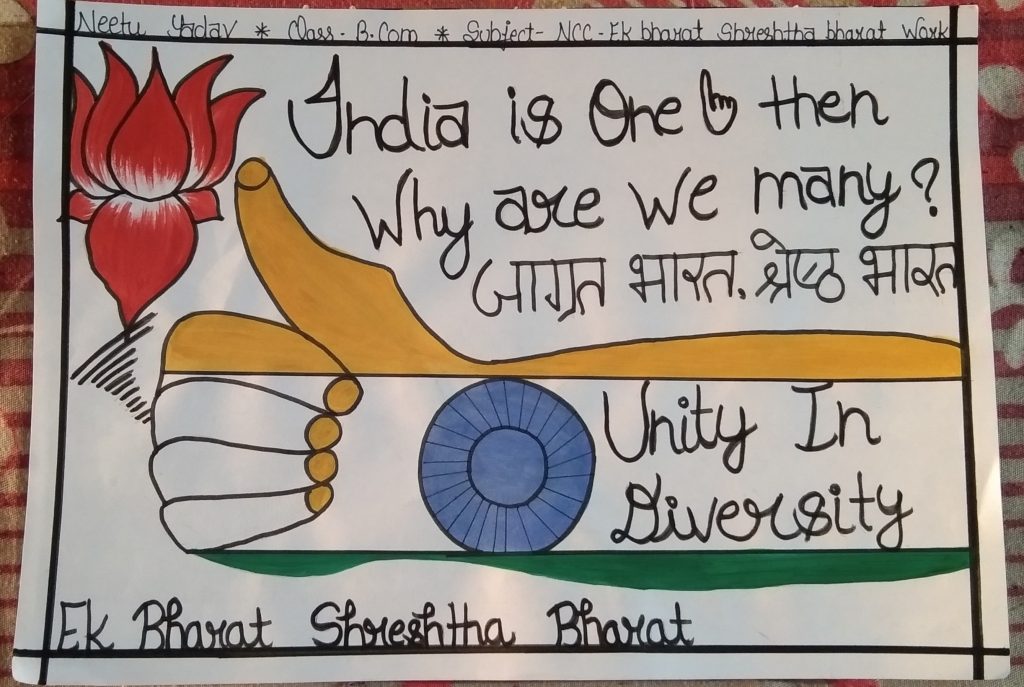 Neetu Yadav * Class - B.Com * Subject - NCC - Ek bharat Shreshtha bharat Work
India is One then
Why are We many?
जाग्रत भारत. श्रेष्ठ भारत
Unity In
Diversity
Ek Bharat Shreshtha Bharat